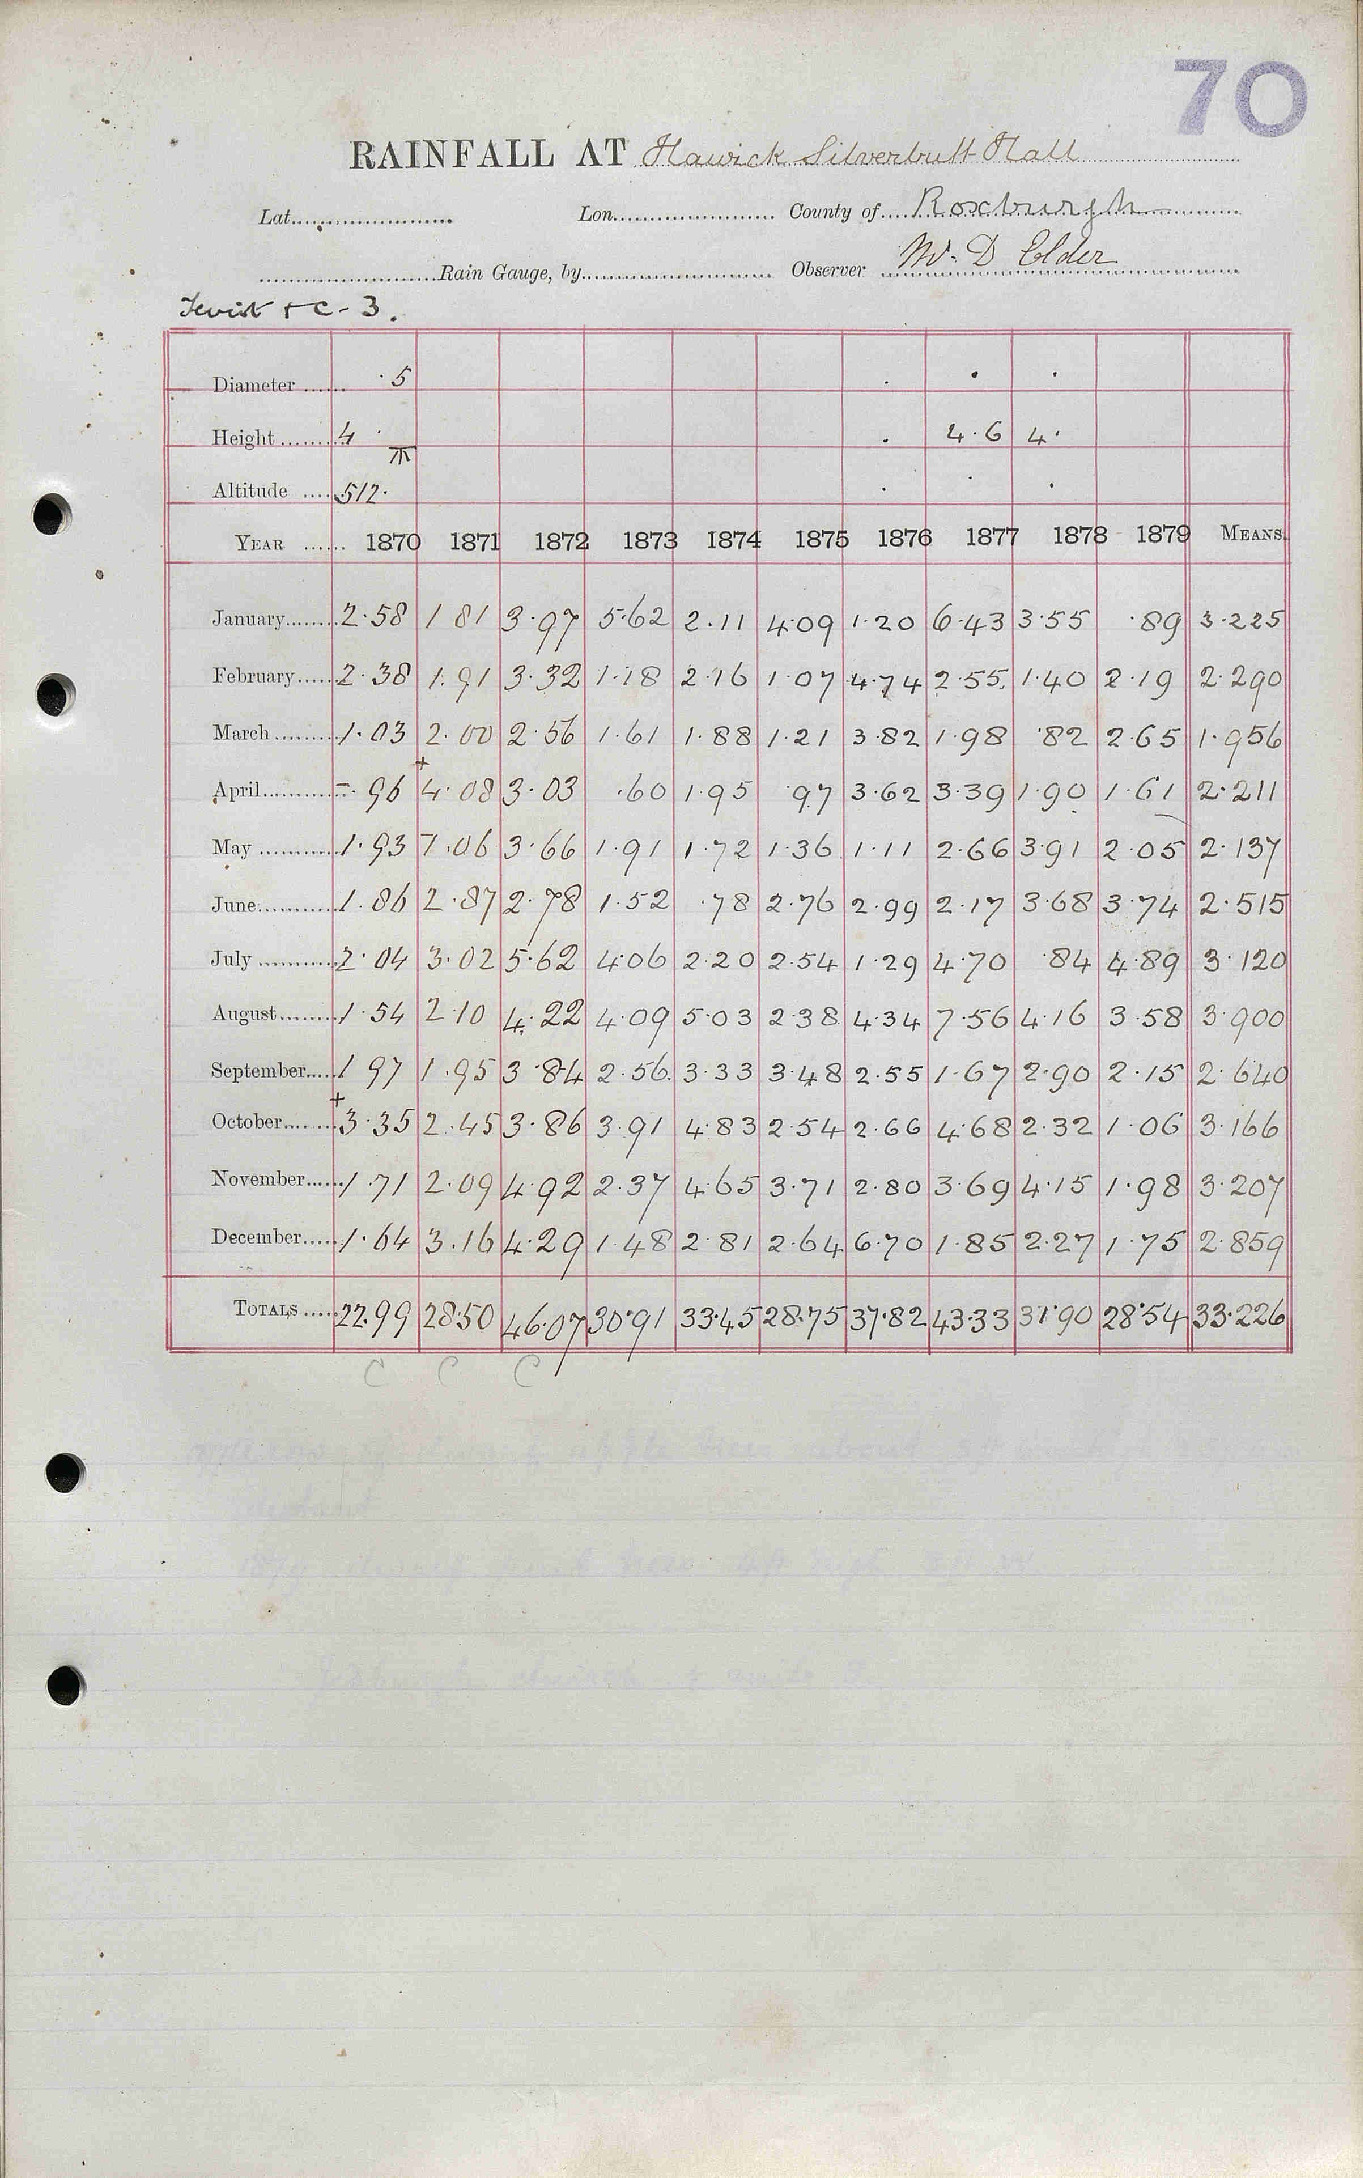 70
RAINFALL AT Hawick Silverbutt Hall
Lat. Lon. County of Roxburgh
Rain Gauge, by Observer W. D Elder
Teviot + C - 3.
Diameter 5
Height 4 4.6 4
Altitude 512
YEAR 1870 1871 1872 1873 1874 1875 1876 1877 1878 1879 MEANS.
January 2.58 1 81 3.97 5.62 2.11 4.09 1.20 6.43 3.55 .89 3.225
February 2.38 1.91 3.32 1.18 2.16 1.07 4.74 2.55 1.40 2.19 2.290
March 1.03 2.00 2.56 1.61 1.88 1.21 3.82 1.98 .82 2.65 1.956
April - .96 + 4.08 3.03 .60 1.95 .97 3.62 3.39 1.90 1.61 2.211
May 1.93 1.06 3.66 1.91 1.72 1.36 1.11 2.66 3.91 2.05 2.137
June 1.86 2.87 2.78 1.52 .78 2.76 2.99 2.17 3.68 3.74 2.515
July 2.04 3.02 5.62 4.06 2.20 2.54 1.29 4.70 .84 4.89 3.120
August 1.54 2.10 4.22 4.09 5.03 2.38 4.34 7.56 4.16 3.58 3.900
September 1 97 1.95 3.84 2.56 3.33 3.48 2.55 1.67 2.90 2.15 2.640
October + 3.35 2.45 3.86 3.91 4.83 2.54 2.66 4.68 2.32 1.06 3.166
November 1.71 2.09 4.92 2.37 4.65 3.71 2.80 3.69 4.15 1.98 3.207
December 1.64 3.16 4.29 1.48 2.81 2.64 6.70 1.85 2.27 1.75 2.859
TOTALS 22.99 28.50 46.07 30.91 33.45 28.75 37.82 43.33 31.90 28.54 33.226
C C C